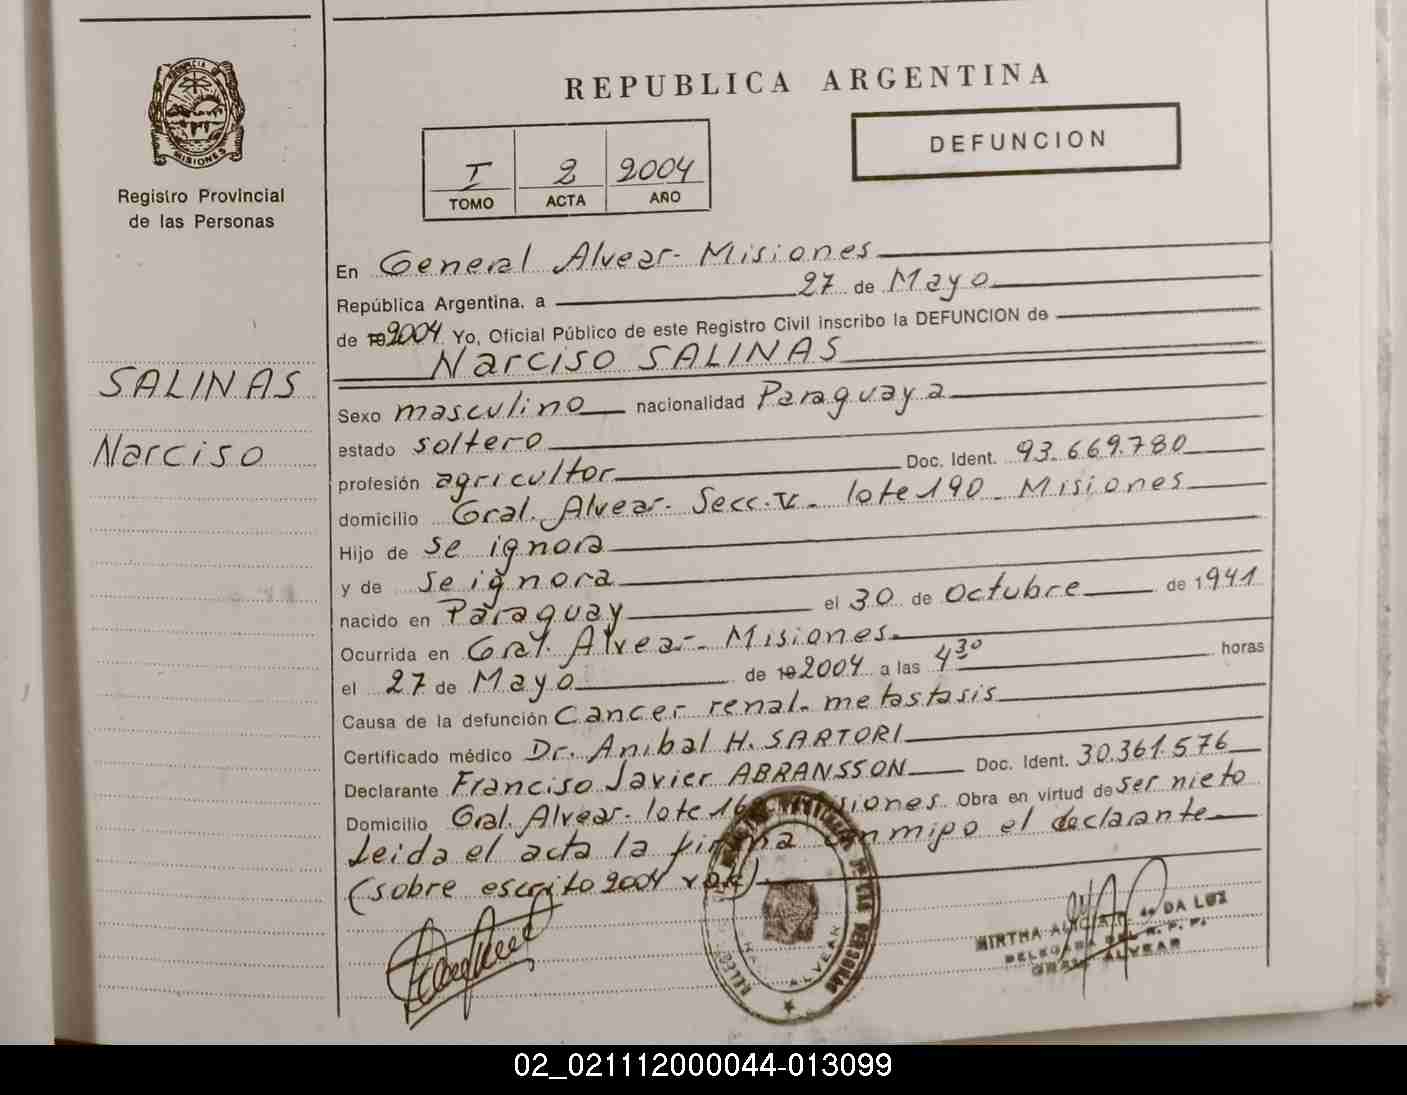 PROVINCIA D
MISIONES
Registro Provincial
de las Personas
SALINAS
Narciso
REPUBLICA ARGENTINA
I 2 2004
TOMO ACTA AÑO
DEFUNCION
En General Alvear - Misiones
República Argentina, a 27 de Mayo
de 19 2004 Yo, Oficial Público de este Registro Civil inscribo la DEFUNCION de
Narciso SALINAS
Sexo masculino nacionalidad Paraguaya
estado soltero
profesión agricultor Doc. Ident. 93.669.780
domicilio Gral. Alvear - Secc. V - lote 190 - Misiones
Hijo de se ignora
y de se ignora
nacido en Paraguay el 30 de Octubre de 1941
Ocurrida en Gral. Alvear - Misiones
el 27 de Mayo de 19 2004 a las 4 30 horas
Causa de la defunción Cancer renal - metastasis
Certificado médico Dr. Anibal H. SARTORI
Declarante Franciso Javier ABRANSSON Doc. Ident. 30.361.576
Domicilio Gral. Alvear - lote Misiones Obra en virtud de ser nieto
Leida el acta la firma conmigo el declarante
(sobre escrito 2004 vale)
MIRTHA DA LUZ
DELEGADA DEL R. P. P.
GRAL. ALVEAR
ALVEAR
02_021112000044-013099